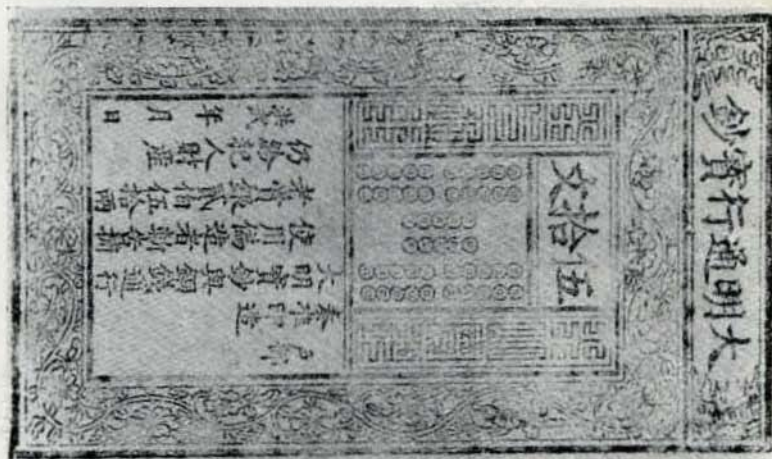 大明通行寳鈔
伍拾文
户部
奏准印造
大明寳鈔與銅錢通行
使用偽造者斬告捕
者賞銀貳佰伍拾兩
仍給犯人財産
洪武年月日